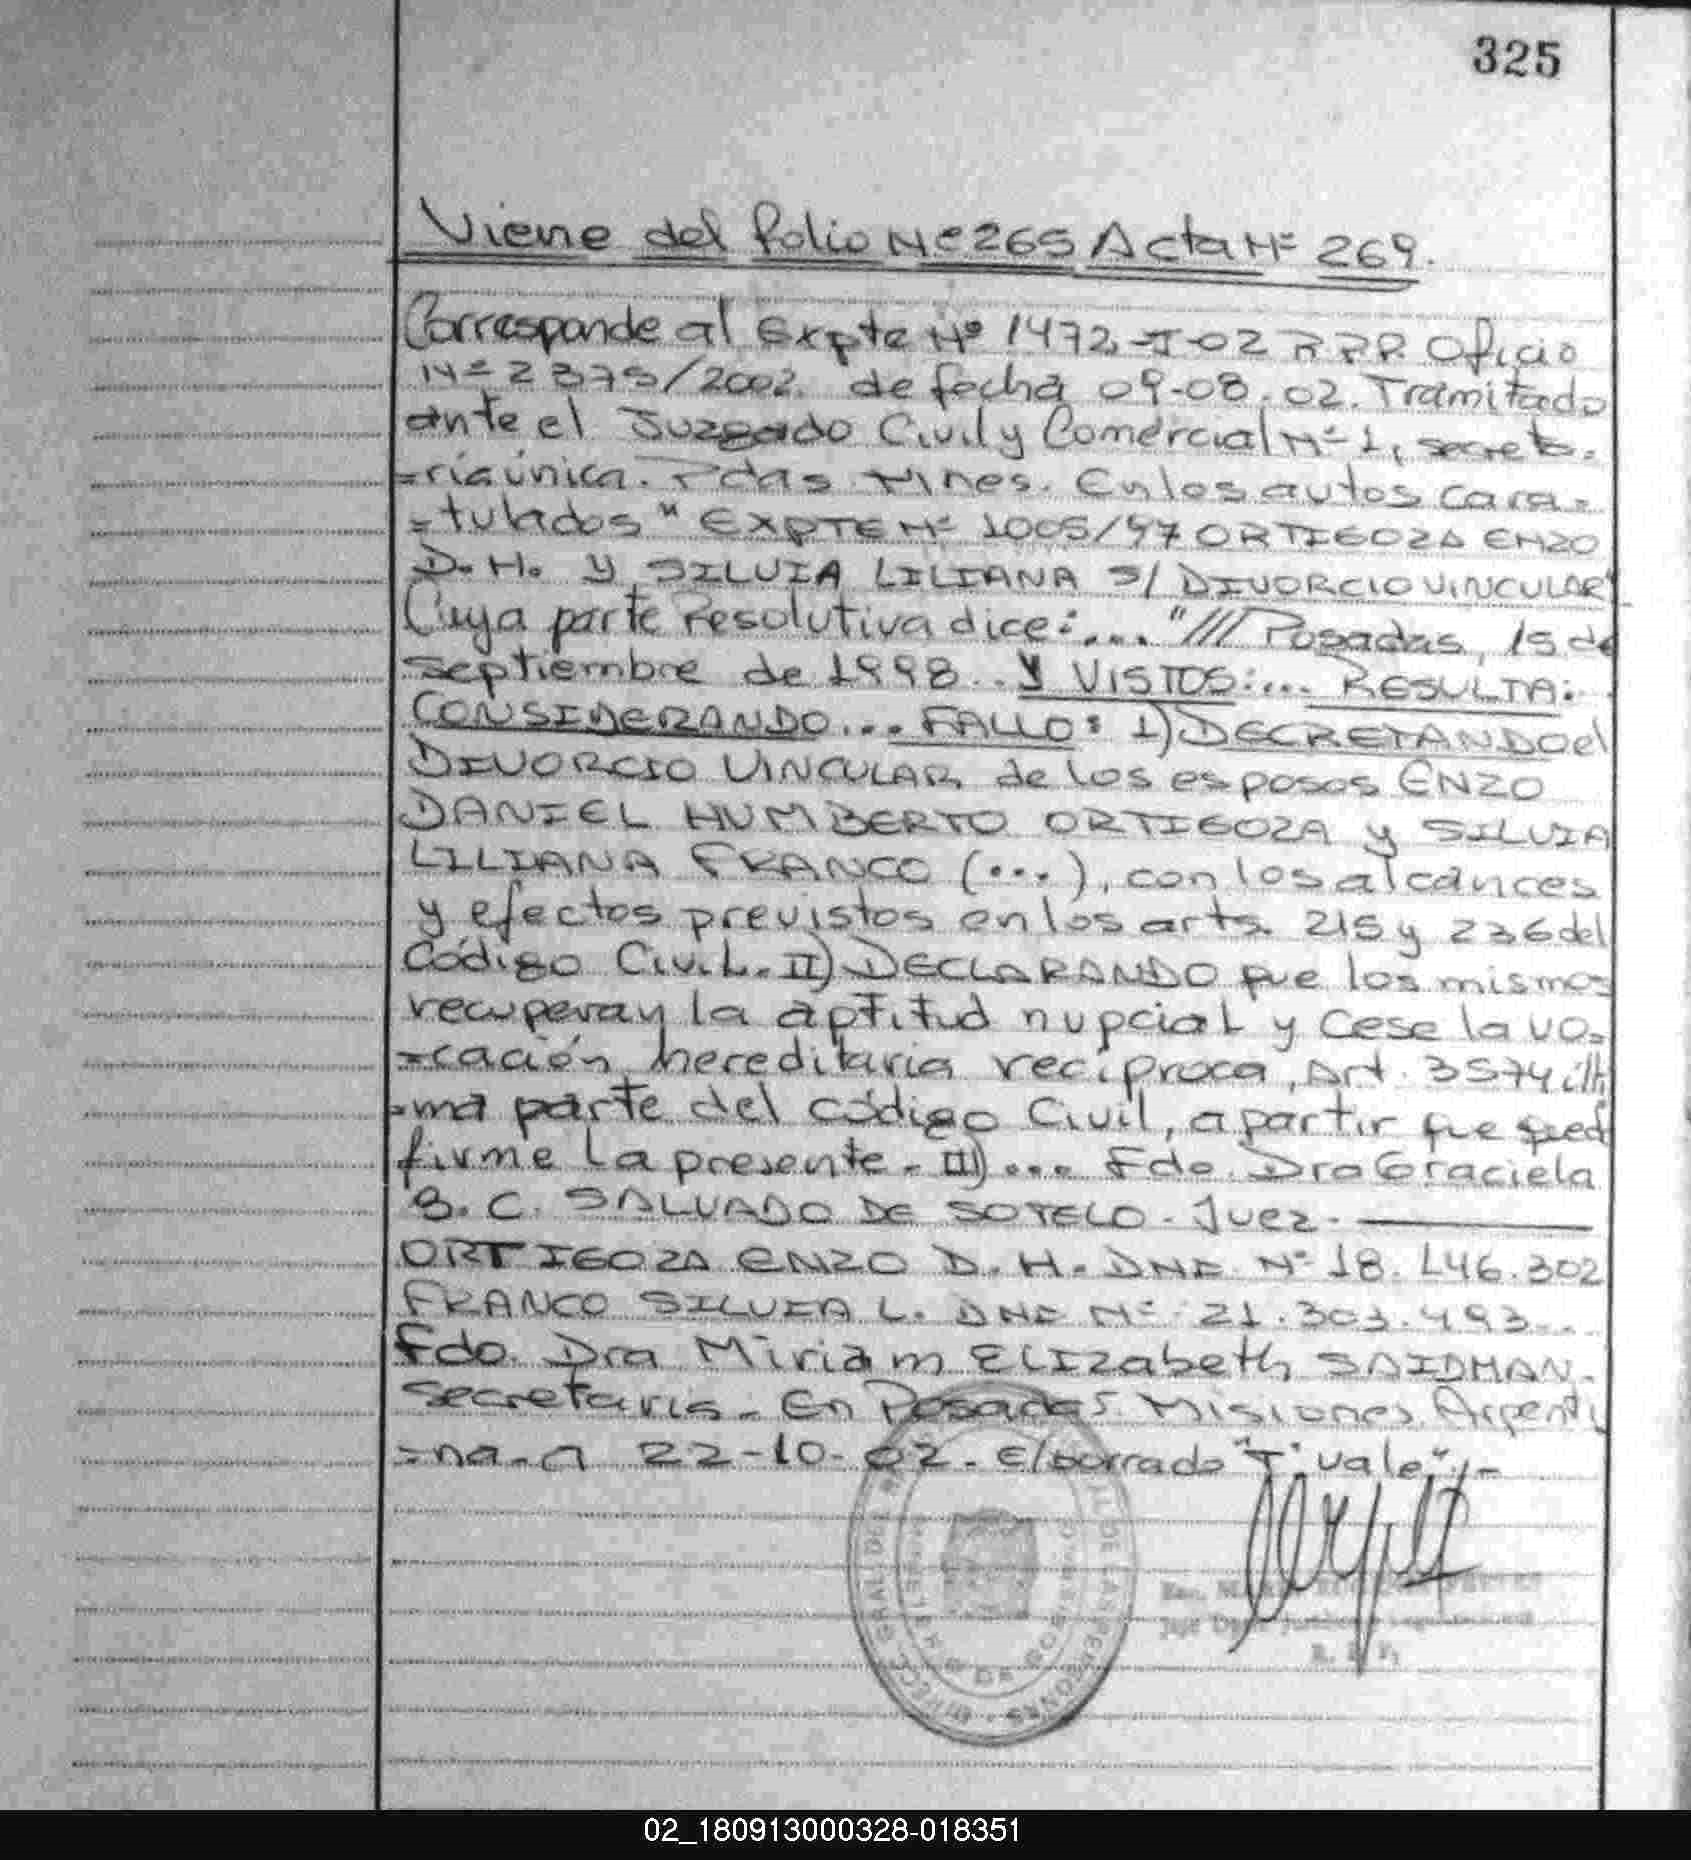 325
Viene del folio Nº 265 Acta Nº 269.
Corresponde al Expte Nº 1472-J-02 R.P.P. Oficio
Nº 2375/2002. de fecha 09-08.02. Tramitado
ante el Juzgado Civil y Comercial Nº 1, secreta=
=ría única. Pdas Mnes. En los autos cara=
=tulados "EXPTE Nº 1005/97 ORTIGOZA ENZO
D. H. y SILVIA LILIANA S/ DIVORCIO VINCULAR"
Cuya parte Resolutiva dice:... "/// Posadas, 15 de
septiembre de 1998.. Y VISTOS:... RESULTA:
CONSIDERANDO... FALLO: 1) DECRETANDO el
DIVORCIO VINCULAR de los esposos ENZO
DANIEL HUMBERTO ORTIGOZA y SILVIA
LILIANA FRANCO (...), con los alcances
y efectos previstos en los arts. 215 y 236 del
Código Civil. II) DECLARANDO que los mismos
recuperan la aptitud nupcial y cese la vo=
=cación hereditaria recíproca, Art. 3574 últi
=ma parte del código Civil, a partir que qued
firme la presente. III)... Fdo. Dra Graciela
B. C. SALVADO DE SOTELO. Juez.
ORTIGOZA ENZO D. H. DNI Nº 18.146.302
FRANCO SILVIA L. DNI Nº 21.303.493...
Fdo. Dra Miriam Elizabeth SAIDMAN.
Secretaria. En Posadas Misiones Argenti
=na. a 22-10-02. El borrado "T" vale"/-
R. P.
02_180913000328-018351